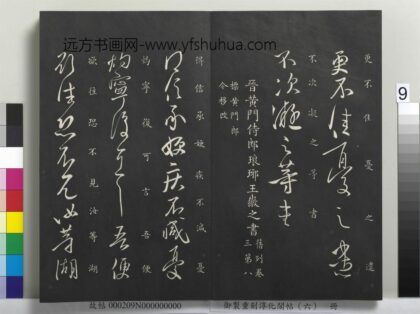 远方书画网-www.yfshuhua.com
更不佳憂之遣
更不佳憂之遣
不次凝之等書
不次凝之等書
晉黃門侍郎琅琊王徽之書
舊列卷
三第八
標黃門郎
今移改
得信承嫂疾不減憂
得信承嫂疾不減憂
灼寧復可言吾便
灼寧復可言吾便
欲往恐不見汝等湖
欲往恐不見汝等湖
9
故帖 000209N000000000
御製重刻淳化閣帖(六) 冊